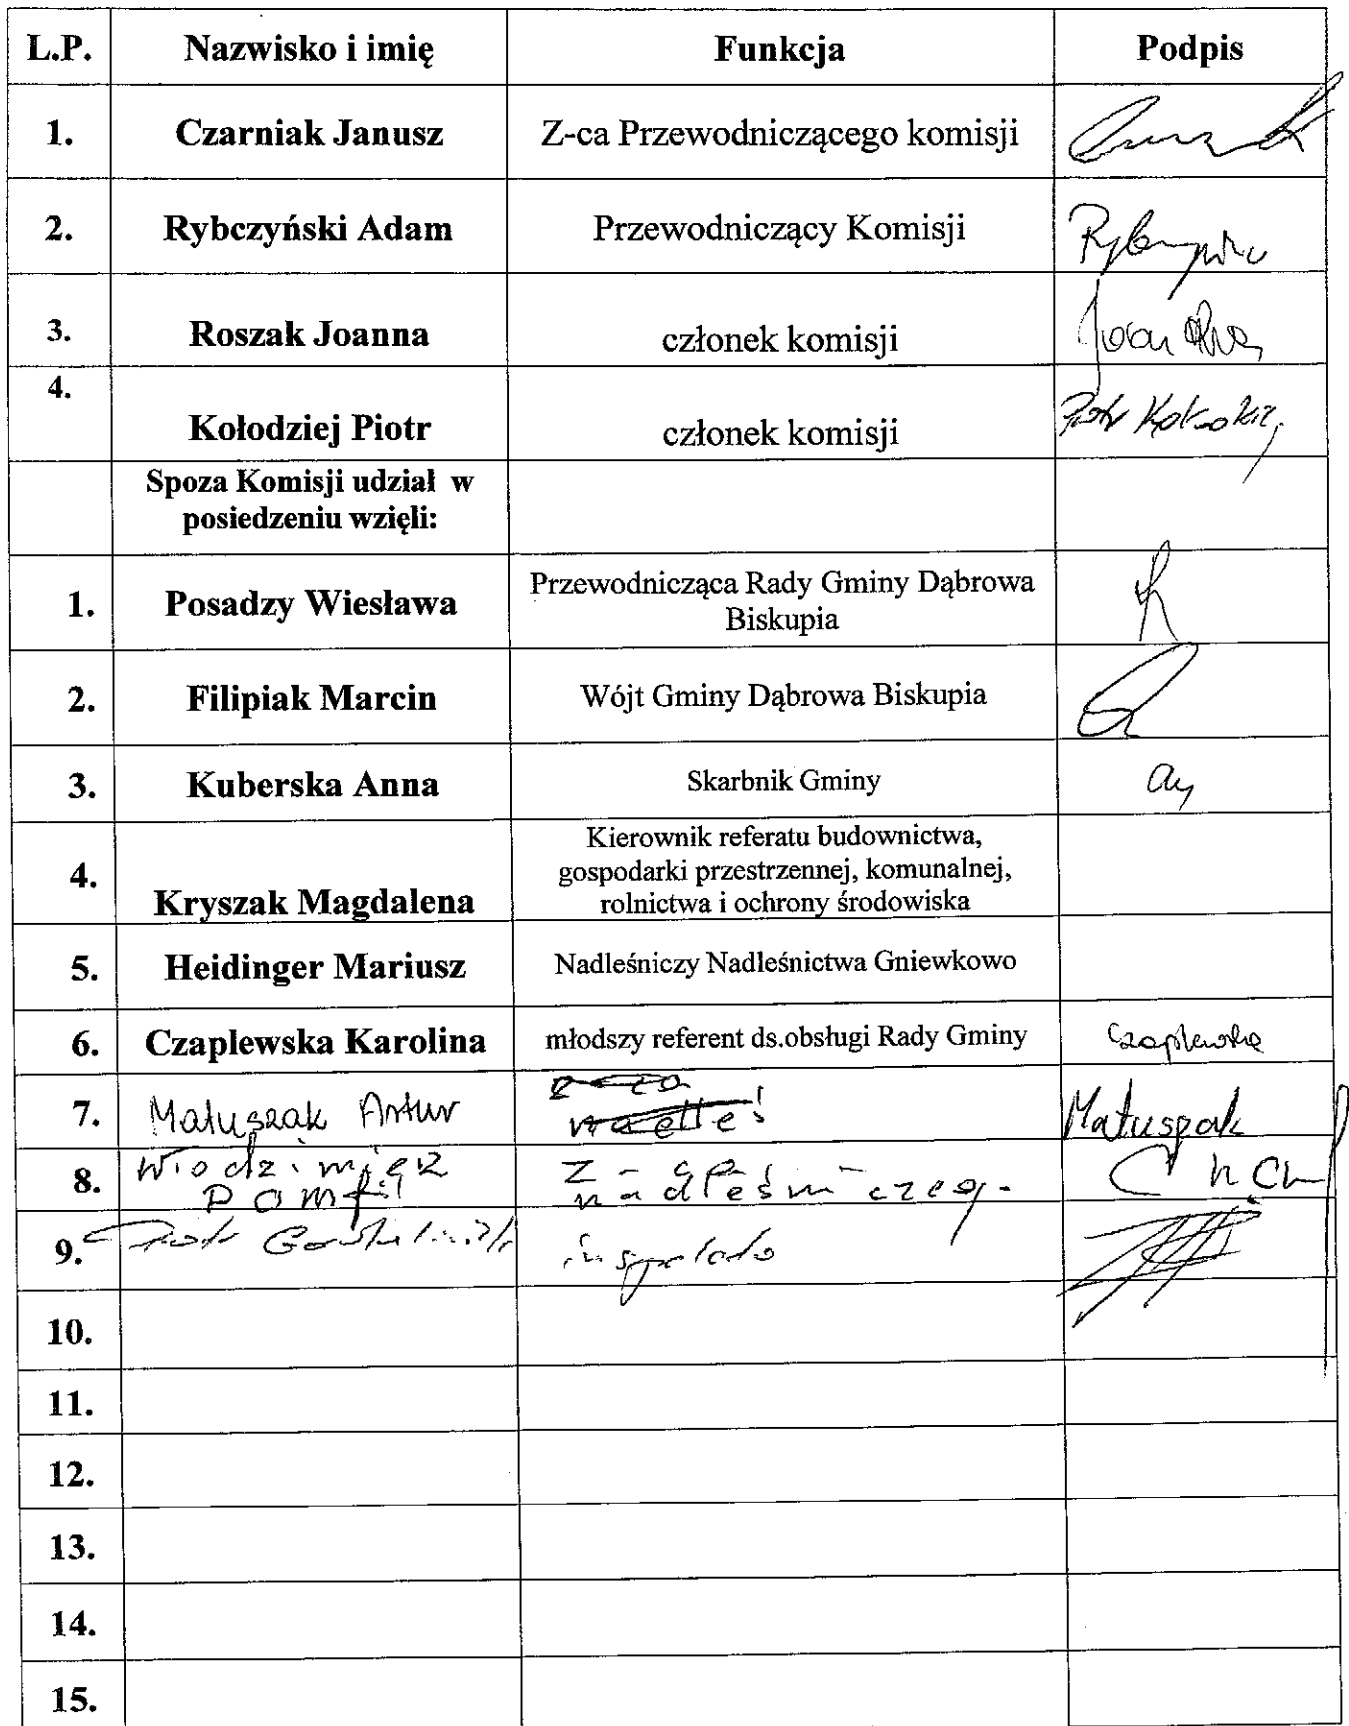 L.P. Nazwisko i imię Funkcja Podpis
1. Czarniak Janusz Z-ca Przewodniczącego komisji
2. Rybczyński Adam Przewodniczący Komisji
3. Roszak Joanna członek komisji
4.
Kołodziej Piotr członek komisji
Spoza Komisji udział w
posiedzeniu wzięli:
1. Posadzy Wiesława Przewodnicząca Rady Gminy Dąbrowa
Biskupia
2. Filipiak Marcin Wójt Gminy Dąbrowa Biskupia
3. Kuberska Anna Skarbnik Gminy
4. Kierownik referatu budownictwa,
gospodarki przestrzennej, komunalnej,
Kryszak Magdalena rolnictwa i ochrony środowiska
5. Heidinger Mariusz Nadleśniczy Nadleśnictwa Gniewkowo
6. Czaplewska Karolina młodszy referent ds.obsługi Rady Gminy Czaplewska
7. Matuszak Artur Matuszak
8. Włodzimierz
9. Piotr
10.
11.
12.
13.
14.
15.